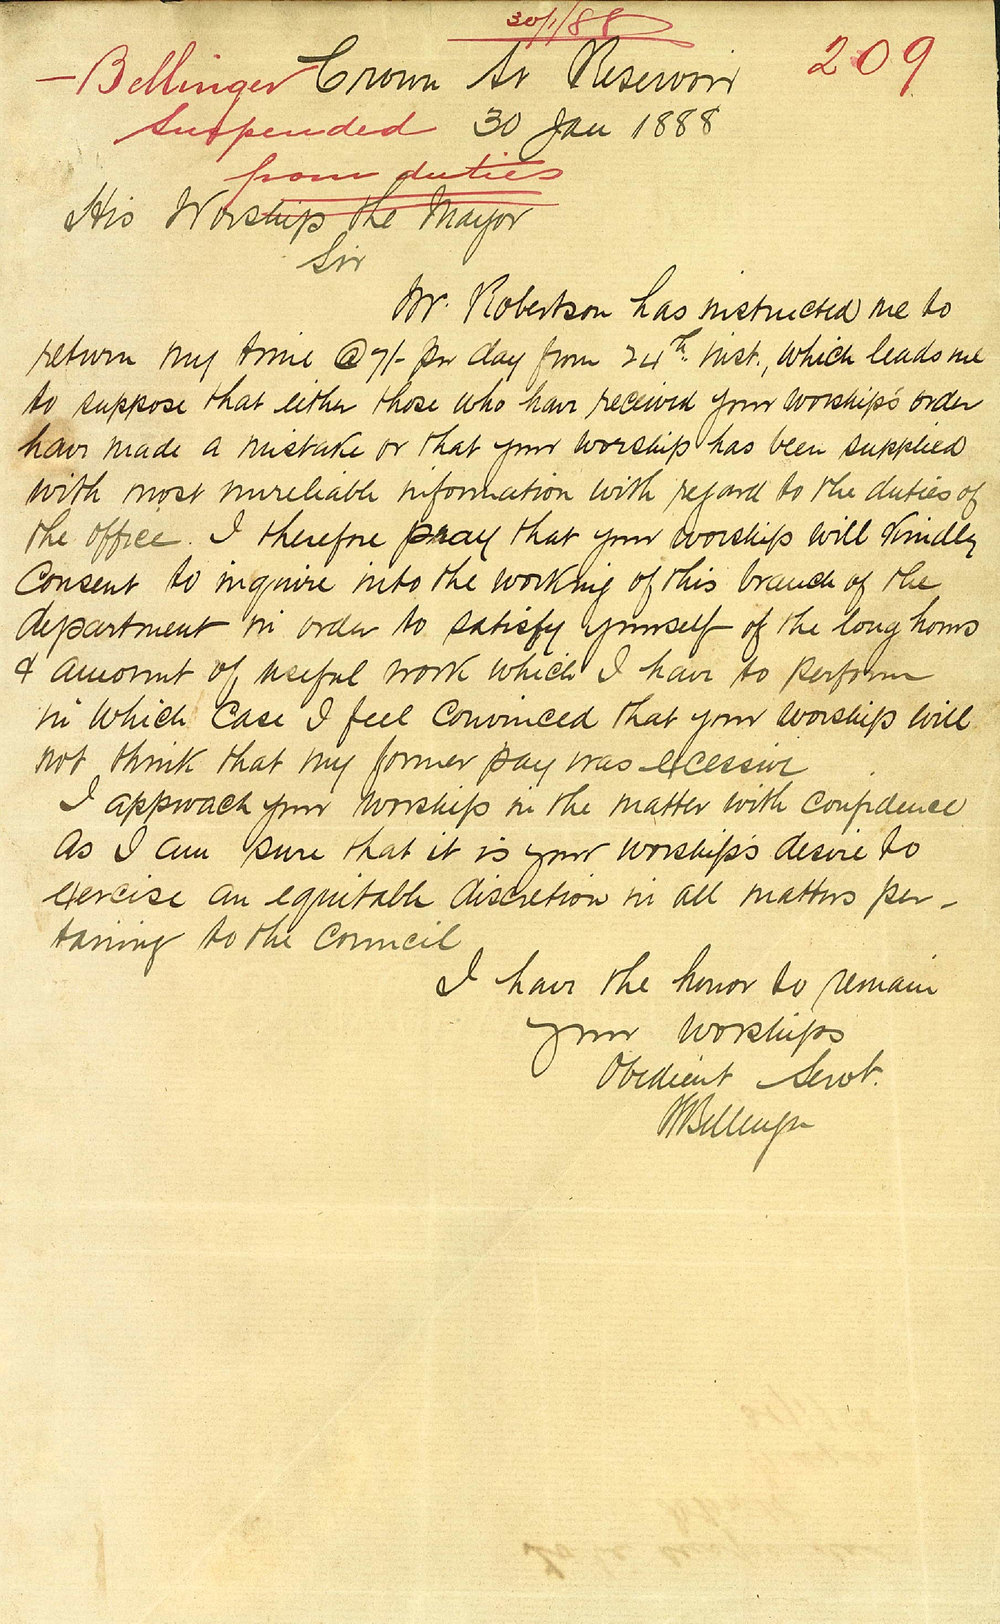 30/1/88
209
- Bellinger
Suspended
from duties
Crown St Reservoir
30 Jan 1888
His Worship the Mayor
Sir
Mr. Robertson has instructed me to
return my time @ 7/- per day from 24th inst., which leads me
to suppose that either those who have received your worship's order
have made a mistake or that your worship has been supplied
with most unreliable information with regard to the duties of
the office. I therefore pray that your worship will kindly
Consent to inquire into the working of this branch of the
department in order to satisfy yourself of the long hours
& amount of useful work which I have to perform
in which case I feel convinced that your worship will
not think that my former pay was excessive
I approach your worship in the matter with confidence
as I am sure that it is your worship's desire to
exercise an equitable discretion in all matters per-
taining to the Council
I have the honor to remain
your worships
Obedient Servt.
WBellinger